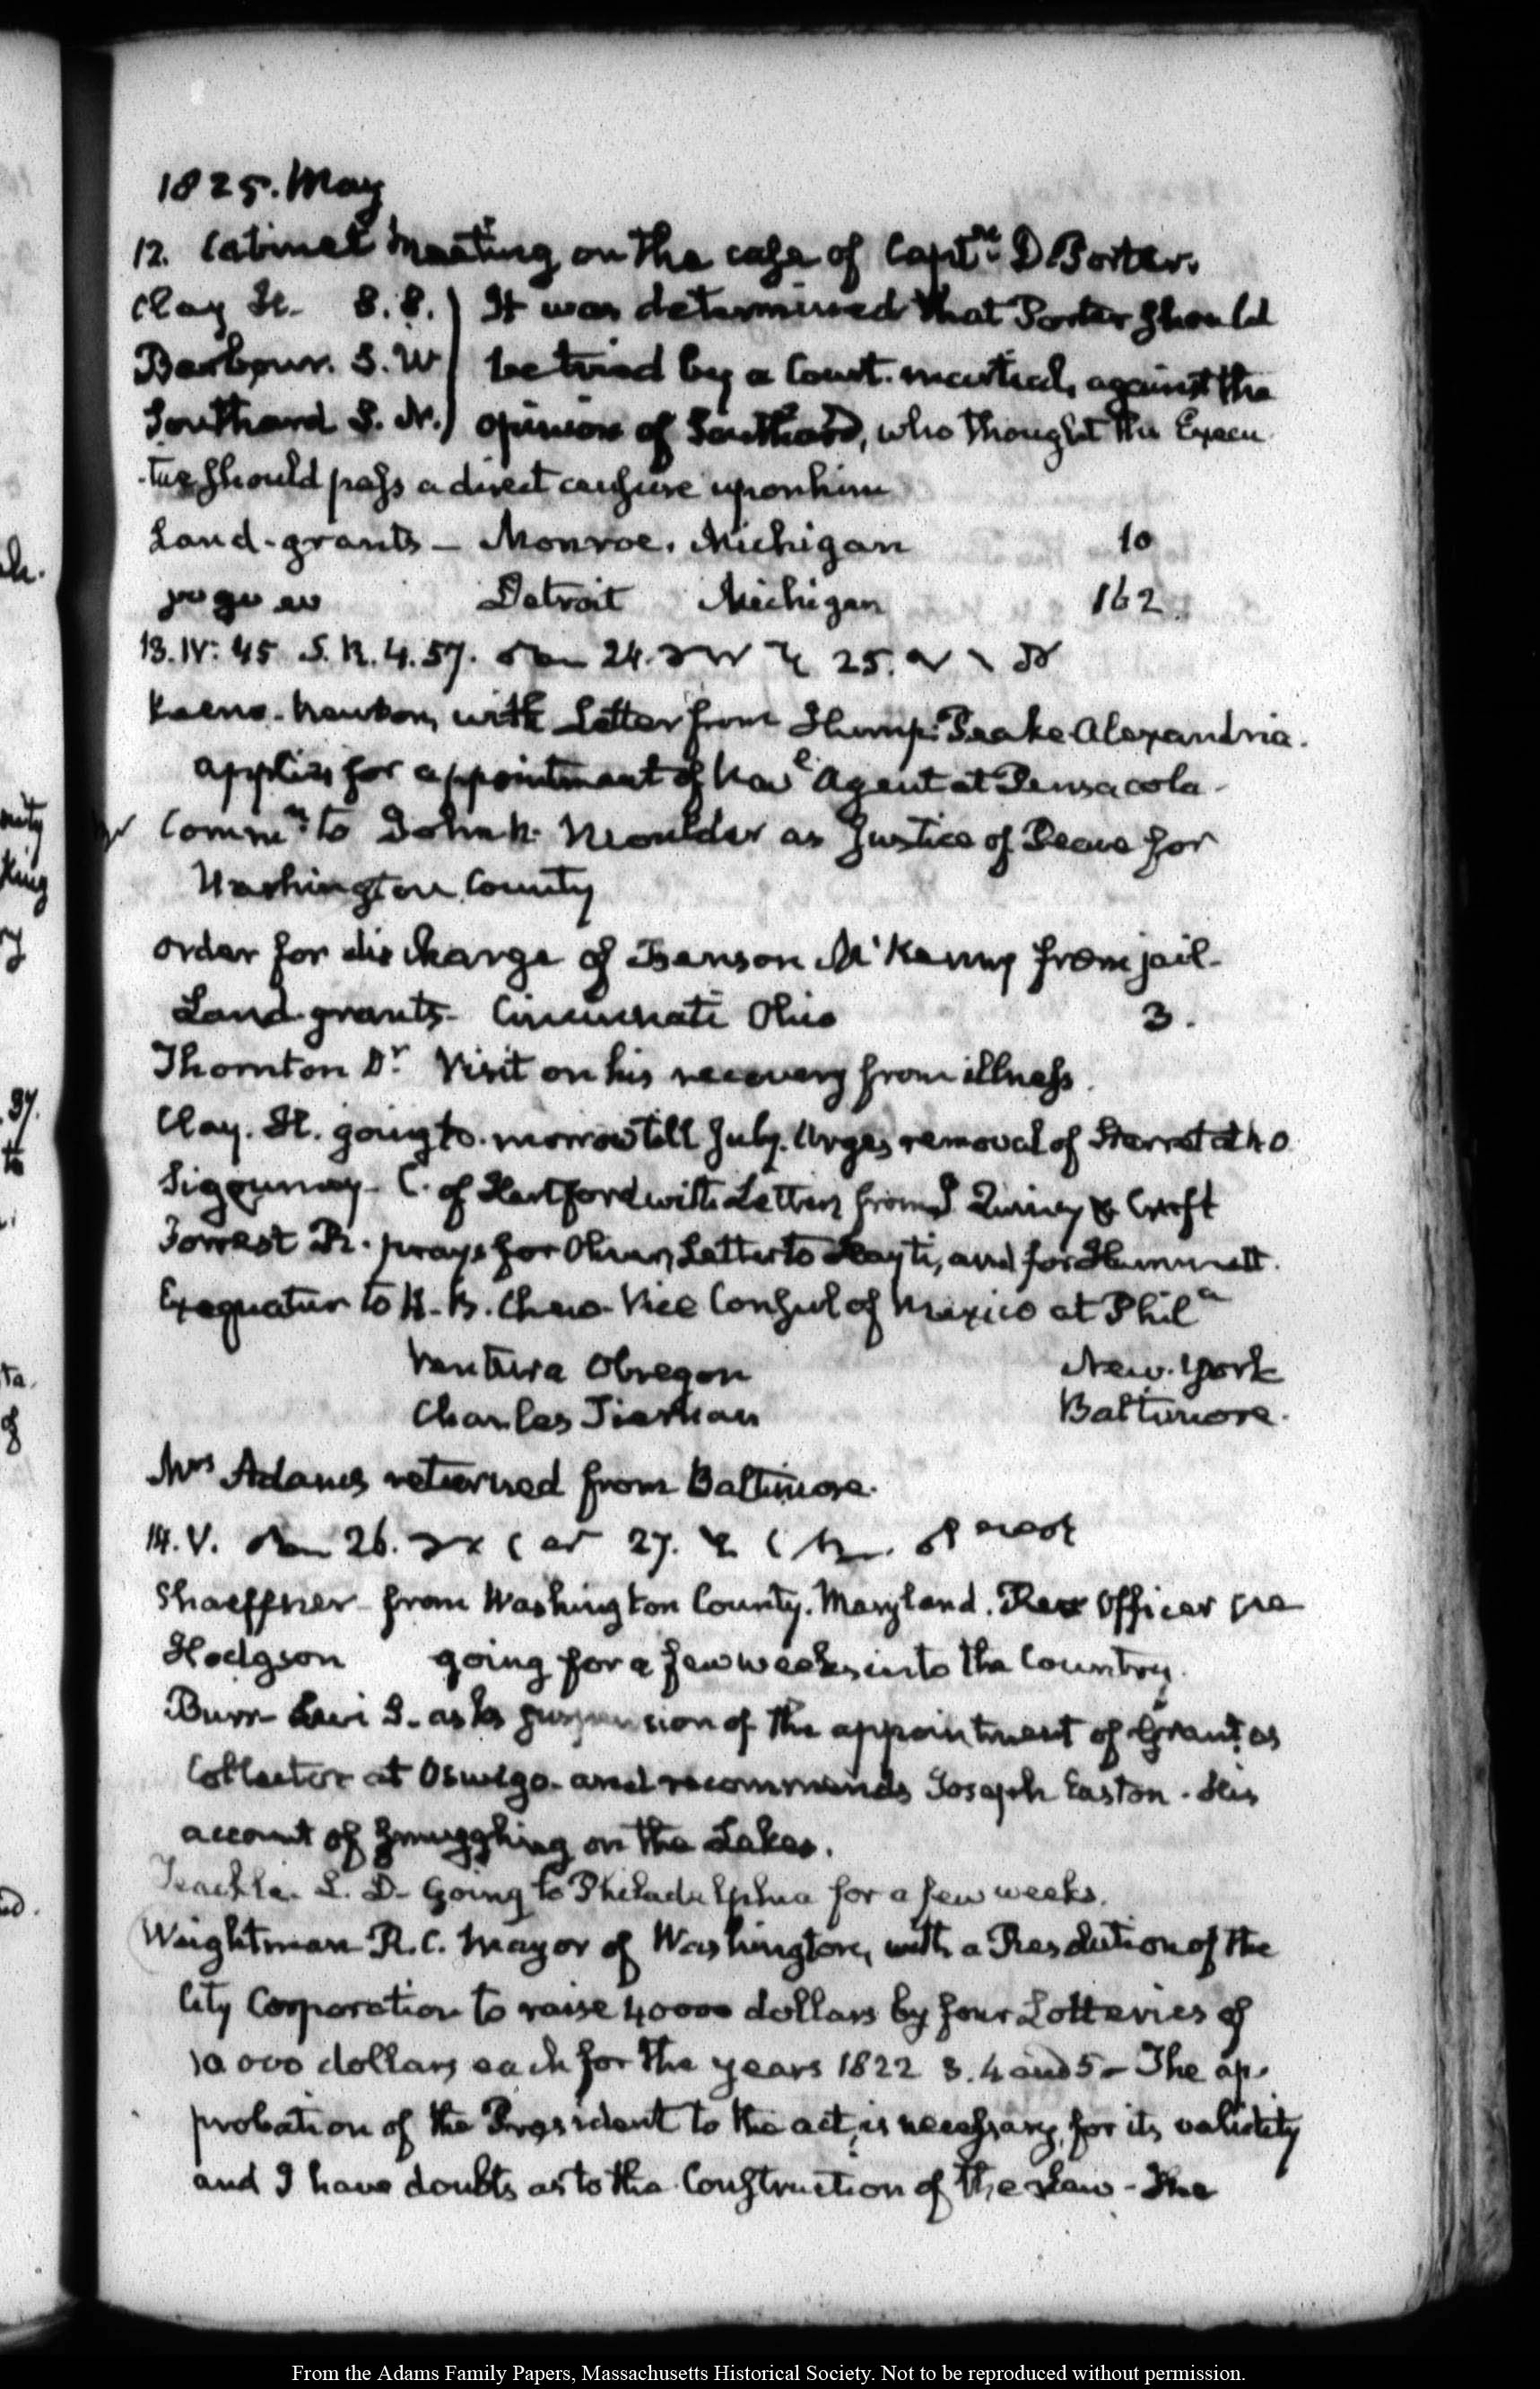 1825. May
12. Cabinet Meeting on the case of Captn. D Porter.
Clay H. S.S. ) It was determined that Porter should
Barbour. S. W ) be tried by a Court-martial, against the
Southard S. N. ) opinion of Southard, who thought the Execu
-tive should pass a direct censure upon him
Land-grants – Monroe. Michigan 10
Detroit Michigan 162
13. IV: 45 S.R. 4.57. 24. 25.
Newton, with Letter from Peake Alexandria.
applies for appointment of Nav.l Agent at Pensacola-
Commn. to John N. Moulder as Justice of Peace for
Washington County
Order for discharge of Benson McKenny from jail-
Land-grants- Cincinnati Ohio 3.
Thornton Dr. Visit on his recovery from illness.
Clay. H. going to-morrow till July. Urges removal of Sterret at N O
Sigourney- C. of Hartford with Letters from J Quincy &
Forrest R. prays for Letter to Hayti, and for
Exequatur to Vice Consul of Mexico at Phila
Ventura Obregon New-York
Charles Tiernan Baltimore.
Mrs Adams returned from Baltimore.
14. V. 26. 27.
Shaeffner- from Washington County. Maryland. Officer
Hodgson going for a few weeks into the Country.
Burr- Levi S. asks suspension of the appointment of Grant as
Collector at Oswego- and recommends Joseph Easton. His
account of smuggling on the Lakes.
Teackle- L. D- Going to Philadelphia for a few weeks.
Weightman R.C. Mayor of Washington, with a Resolution of the
City Corporation to raise 40000 dollars by four Lotteries of
10 000 dollars each for the years 1822 3. 4 and 5- The ap-
probation of the President to the act, is necessary, for its validity
and I have doubts as to the Construction of the Law- The
From the Adams Family Papers, Massachusetts Historical Society. Not to be reproduced without permission.